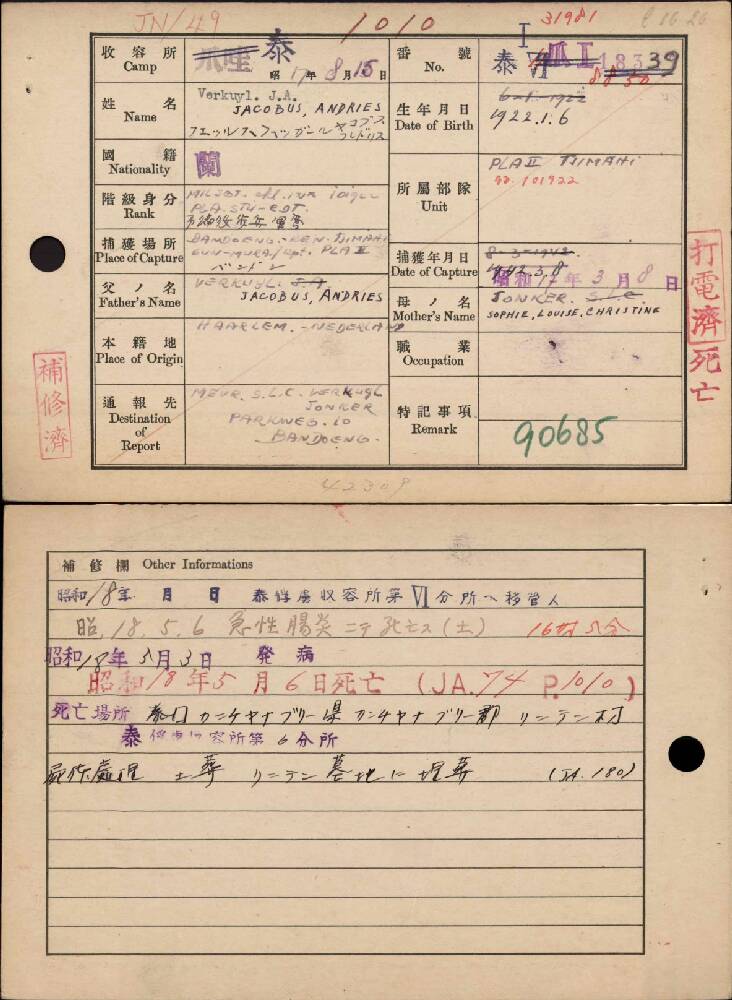 JN/49
1010
I
31981
収容所
Camp
爪哇 泰
昭 17年 8月15日
番號
No.
泰 VI 爪 II 18339
姓名
Name
Verkuyl. J.A.
JACOBUS, ANDRIES
生年月日
Date of Birth
6-1-1922
1922.1.6
國籍
Nationality
蘭
階級身分
Rank
所屬部隊
Unit
PLA II TJIMAHI
no. 101922
捕獲場所
Place of Capture
BANDOENG.
PLA II
バンドン
捕獲年月日
Date of Capture
8-3-1942
1942.3.8
昭和17年 3月8日
父ノ名
Father's Name
VERKUYL. J.A.
JACOBUS, ANDRIES
母ノ名
Mother's Name
JONKER. S.L.C.
SOPHIE, LOUISE, CHRISTINE
本籍地
Place of Origin
HAARLEM. - NEDERLAND
職業
Occupation
通報先
Destination
of
Report
MEVR. S.L.C. VERKUYL
JONKER
PARKWEG. 10
BANDOENG.
特記事項
Remark
90685
補修濟
打電濟 死亡
42309
補修欄 Other Informations
昭和18年 月 日 泰俘虜収容所第VI分所ヘ移管入
昭.18.5.6 急性腸炎ニテ死亡ス(土)
昭和18年5月3日 発病
昭和18年5月6日死亡 (JA.74 P.1010)
死亡場所 泰国カンチヤナブリー県カンチヤナブリー郡リンテン村
泰俘虜収容所第6分所
屍体處理 土葬 リンテン墓地ニ埋葬 (JA.180)